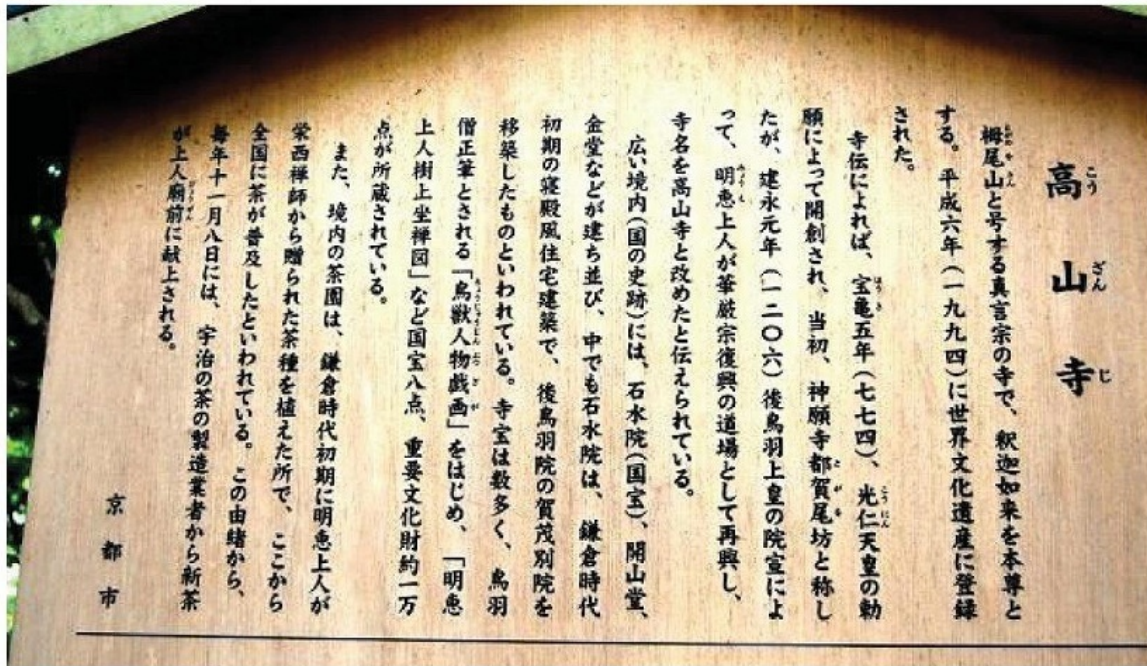 高山寺
栂尾山と号する真言宗の寺で、釈迦如来を本尊と
する。平成六年(一九九四)に世界文化遺産に登録
された。
寺伝によれば、宝亀五年(七七四)、光仁天皇の勅
願によって開創され、当初、神願寺都賀尾坊と称し
たが、建永元年(一二〇六)後鳥羽上皇の院宣によ
って、明恵上人が華厳宗復興の道場として再興し、
寺名を高山寺と改めたと伝えられている。
広い境内(国の史跡)には、石水院(国宝)、開山堂、
金堂などが建ち並び、中でも石水院は、鎌倉時代
初期の寝殿風住宅建築で、後鳥羽院の賀茂別院を
移築したものといわれている。寺宝は数多く、鳥羽
僧正筆とされる「鳥獣人物戯画」をはじめ、「明恵
上人樹上坐禅図」など国宝八点、重要文化財約一万
点が所蔵されている。
また、境内の茶園は、鎌倉時代初期に明恵上人が
栄西禅師から贈られた茶種を植えた所で、ここから
全国に茶が普及したといわれている。この由緒から、
毎年十一月八日には、宇治の茶の製造業者から新茶
が上人廟前に献上される。
京都市